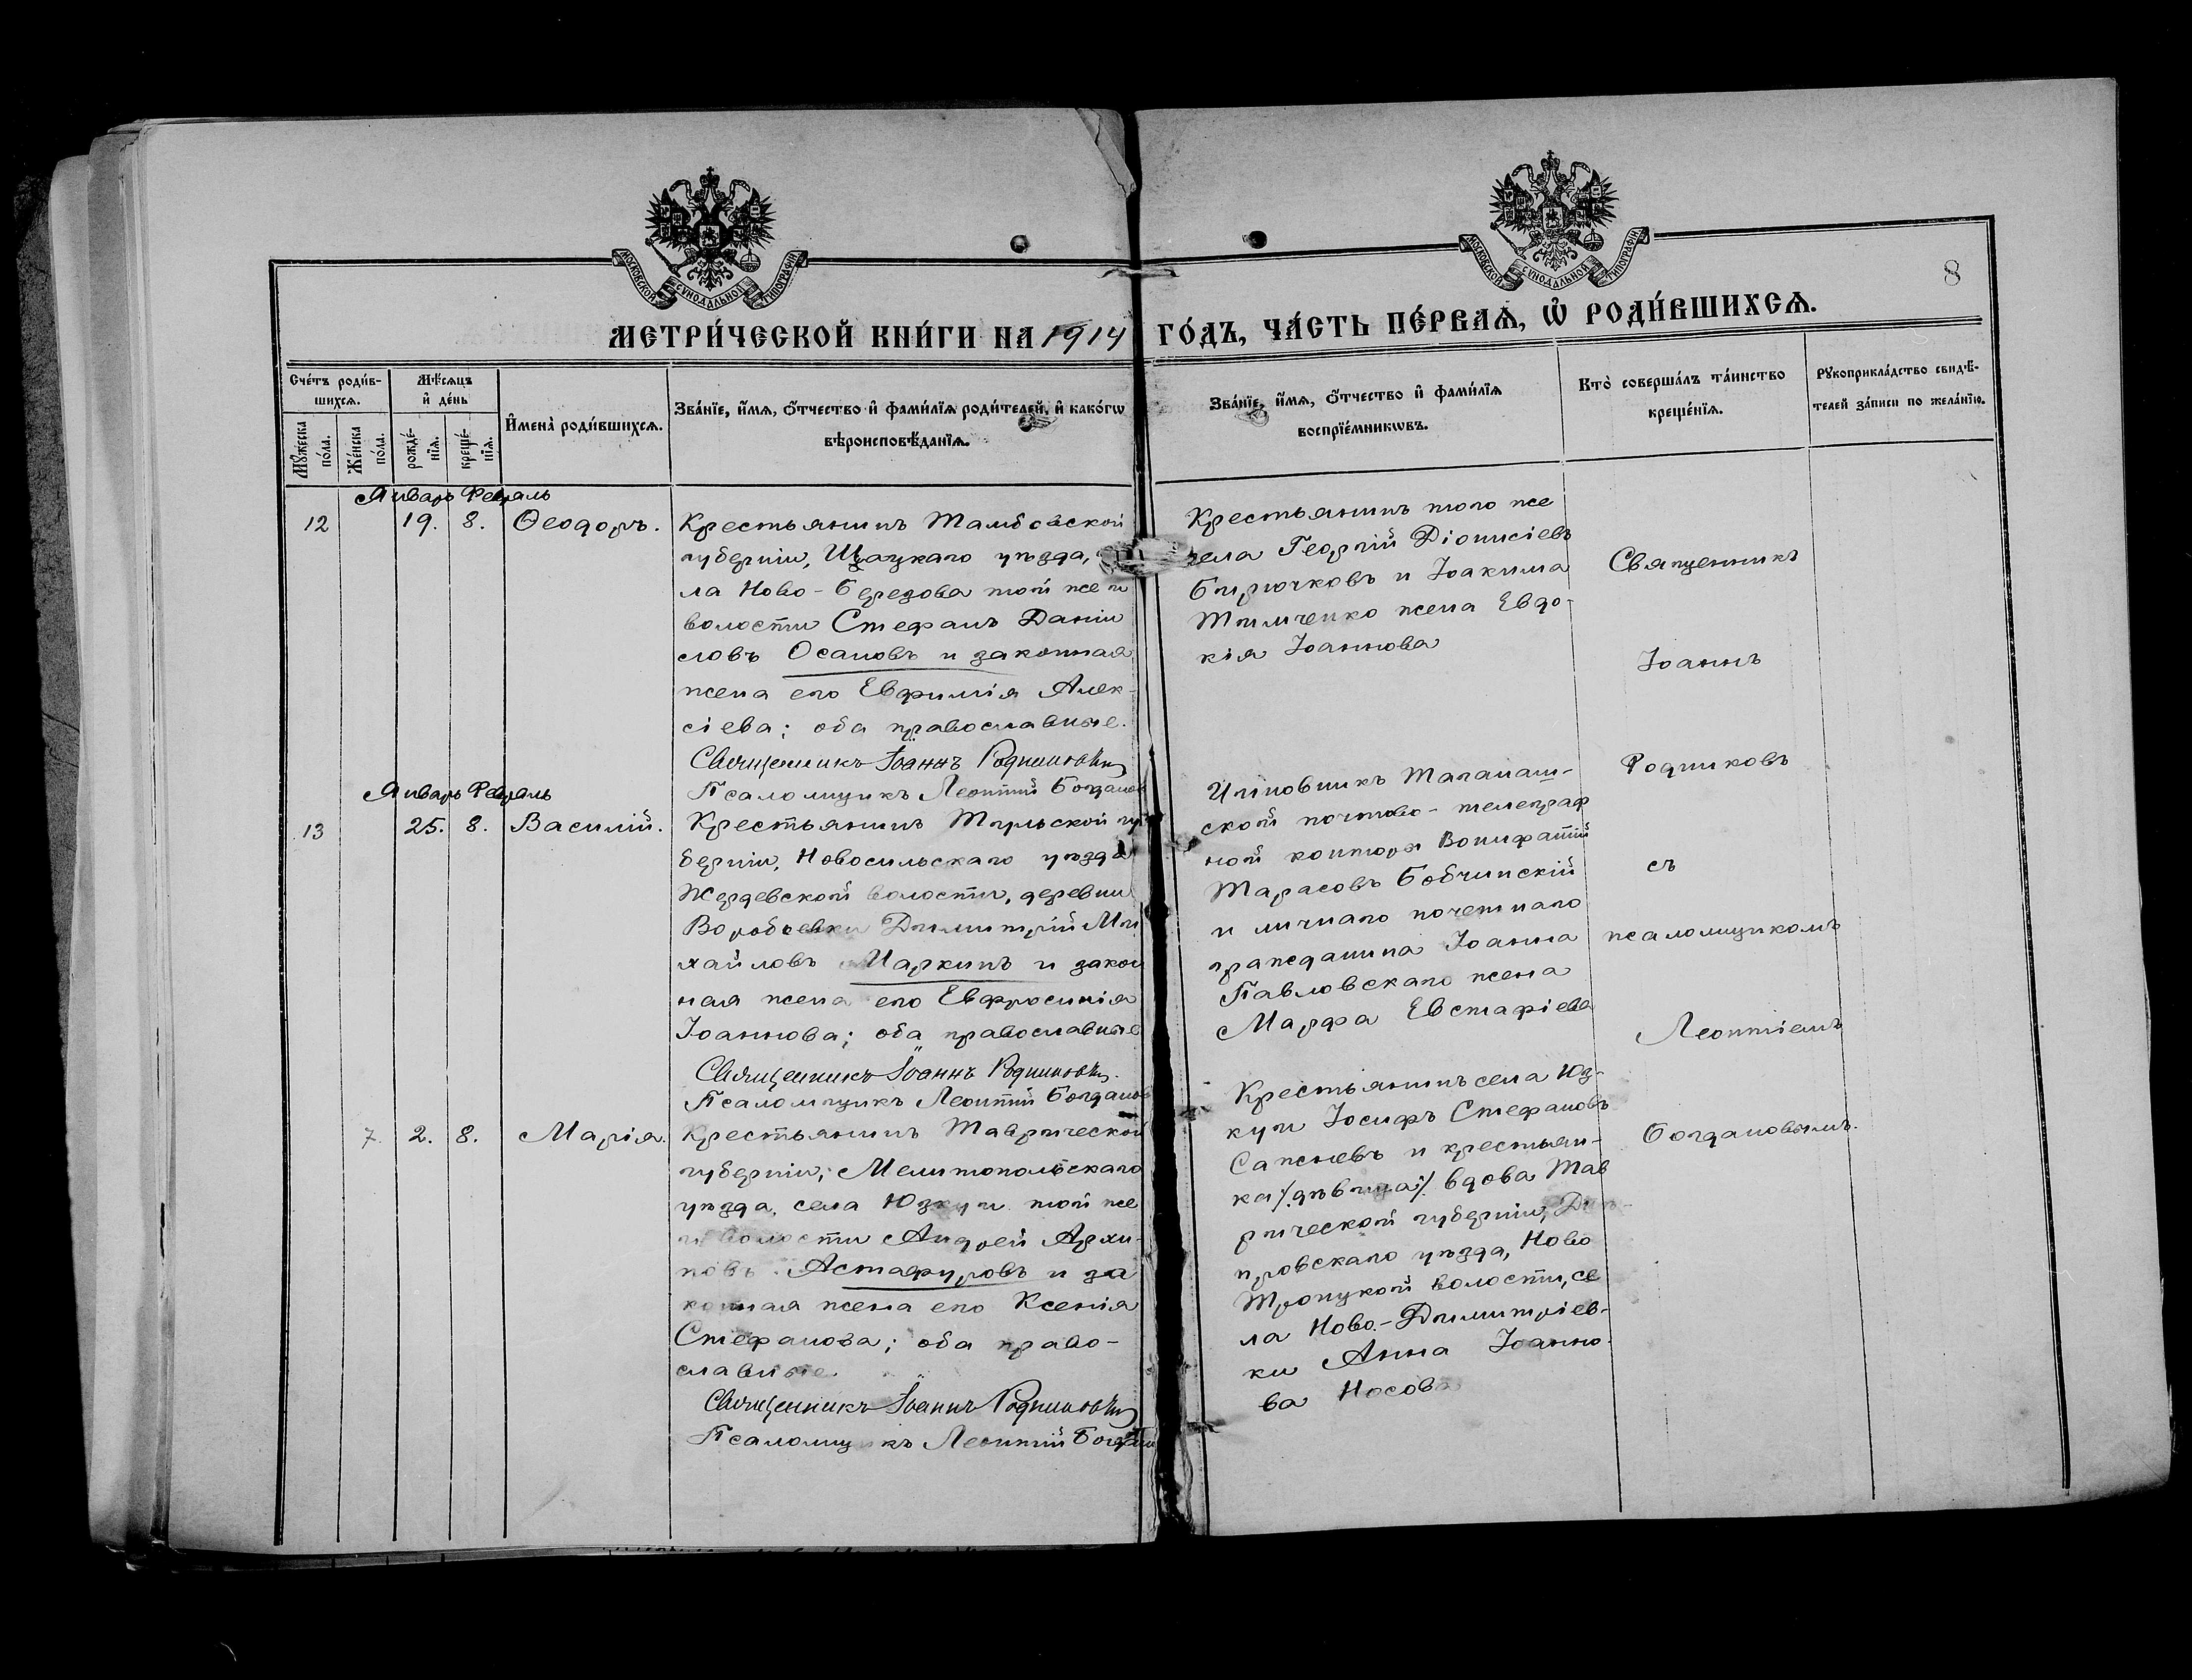 МОСКОВСКОЙ СУНОДАЛЬНОЙ ТИПОГРАФІИ
МОСКОВСКОЙ СУНОДАЛЬНОЙ ТИПОГРАФІИ
8
МЕТРИ́ЧЕСКОЙ КНИ́ГИ НА 1914 ГО́ДЪ, ЧА́СТЬ ПЕ́РВАѦ, Ѡ҆ РОДИ́ВШИХСѦ.
Сче́тъ роди́в-
шихсѧ.
Мѣ́сѧцъ
и҆ де́нь
Мꙋ́жеска
по́ла.
Же́нска
по́ла.
рожде́-
нїѧ.
креще́-
нїѧ.
И҆мена̀ роди́вшихсѧ.
Зва́нїе, и҆́мѧ, ѻ҆́тчество и҆ фами́лїѧ роди́телей, и҆ како́гѡ
вѣроисповѣ́данїѧ.
Зва́нїе, и҆́мѧ, ѻ҆́тчество и҆ фами́лїѧ
воспрїе́мникѡвъ.
Кто̀ соверша́лъ та́инство
креще́нїѧ.
Рꙋкоприкла́дство свидѣ́-
телей за́писи по жела́нїю.
Январь Февраль
12 19. 8. Ѳеодоръ.
Крестьянинъ Тамбовской
губерніи, Шацкаго уѣзда,
ла Ново-Березова той же
волости Стефанъ Даніи
ловъ Осановъ и законная
жена его Евфимія Алек-
сіева; оба православные.
Священникъ Іоаннъ Родниковъ
Псаломщикъ Леонтій Богданов
Крестьянинъ того же
села Георгій Діонисіевъ
Бирючковъ и Іоакима
Тимченко жена Евдо-
кія Іоаннова
Священникъ
Іоаннъ
Родниковъ
съ
псаломщикомъ
Леонтіемъ
Богдановымъ.
Январь Февраль
13 25. 8. Василій.
Крестьянинъ Тульской гу
берніи, Новосильскаго уѣзда
Жердевской волости, деревни
Воробьевки Димитрій Ми
хайловъ Маркинъ и закон
ная жена его Евфросинія
Іоаннова; оба православные
Священникъ Іоаннъ Родниковъ.
Псаломщикъ Леонтій Богданов
Чиновникъ Таганаш-
ской почтово-телеграф
ной конторы Вонифатій
Тарасовъ Бобчинскій
и личнаго почетнаго
гражданина Іоанна
Павловскаго жена
Марфа Евстафіева
7. 2. 8. Марія.
Крестьянинъ Таврической
губерніи, Мелитопольскаго
уѣзда, села Юзкуи той же
волости Андрей Архи-
повъ Астафуровъ и за
конная жена его Ксенія
Стефанова; оба право-
славные.
Священникъ Іоаннъ Родниковъ
Псаломщикъ Леонтій Богдан
Крестьянинъ села Юз-
куи Іосифъ Стефановъ
Сапсневъ и крестьян-
ка /дѣвица/ вдова Тав
рической губерніи, Днѣ-
провскаго уѣзда, Ново
Троицкой волости, се
ла Ново-Димитріев-
ки Анна Іоанно-
ва Носова